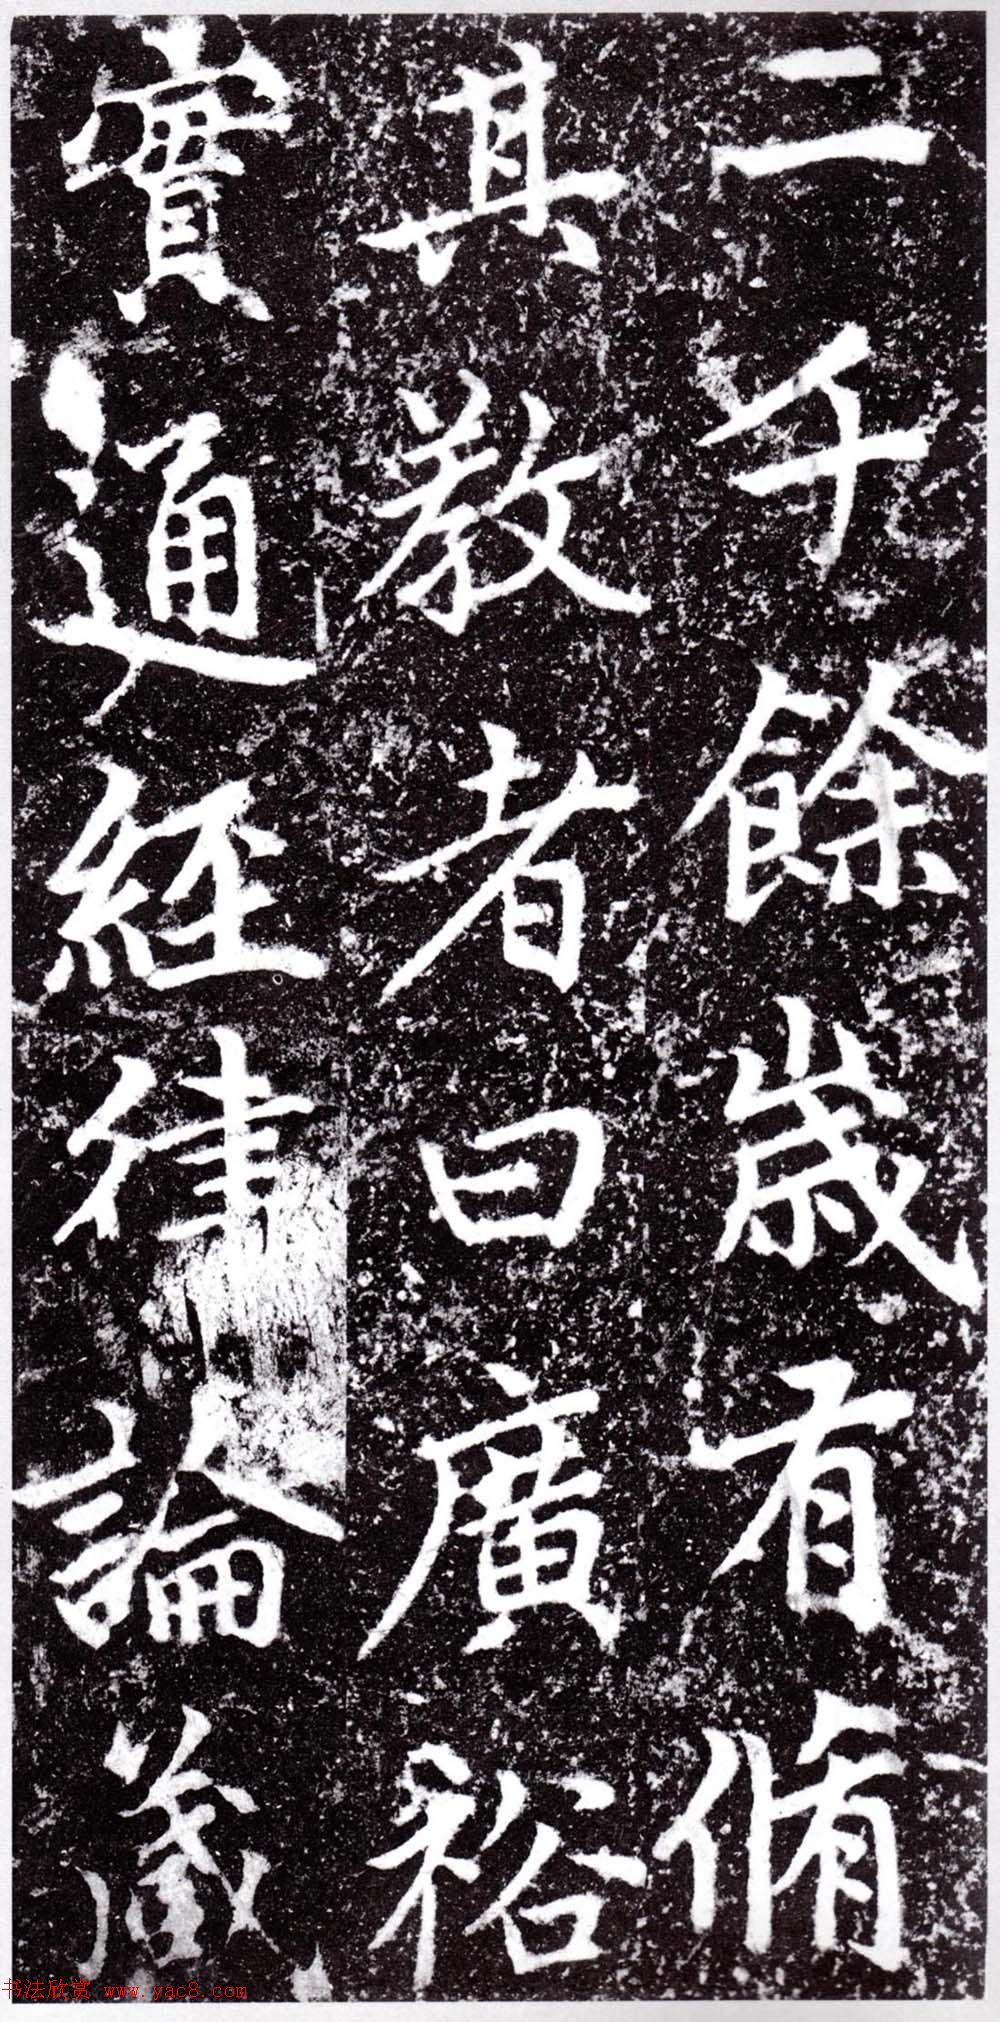 二千餘歲有脩
其教者曰廣裕
實通經律論藏
书法欣赏 www.yac8.com